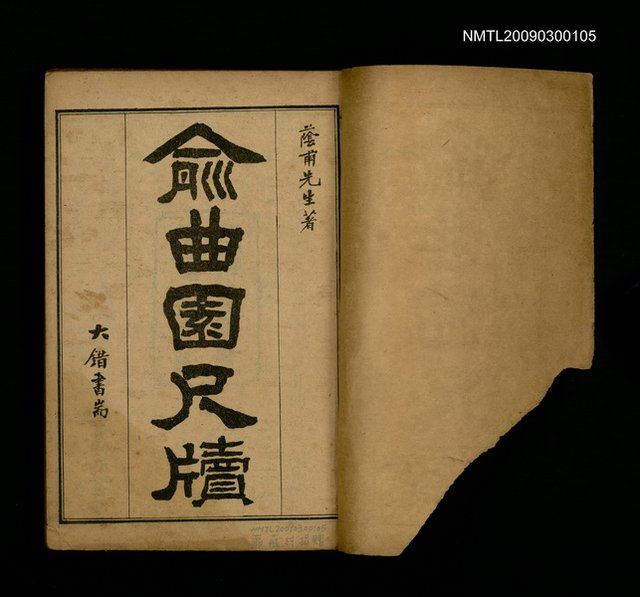 NMTL20090300105
蔭甫先生著
俞曲園尺牘
大錯書耑
NMTL20090300105